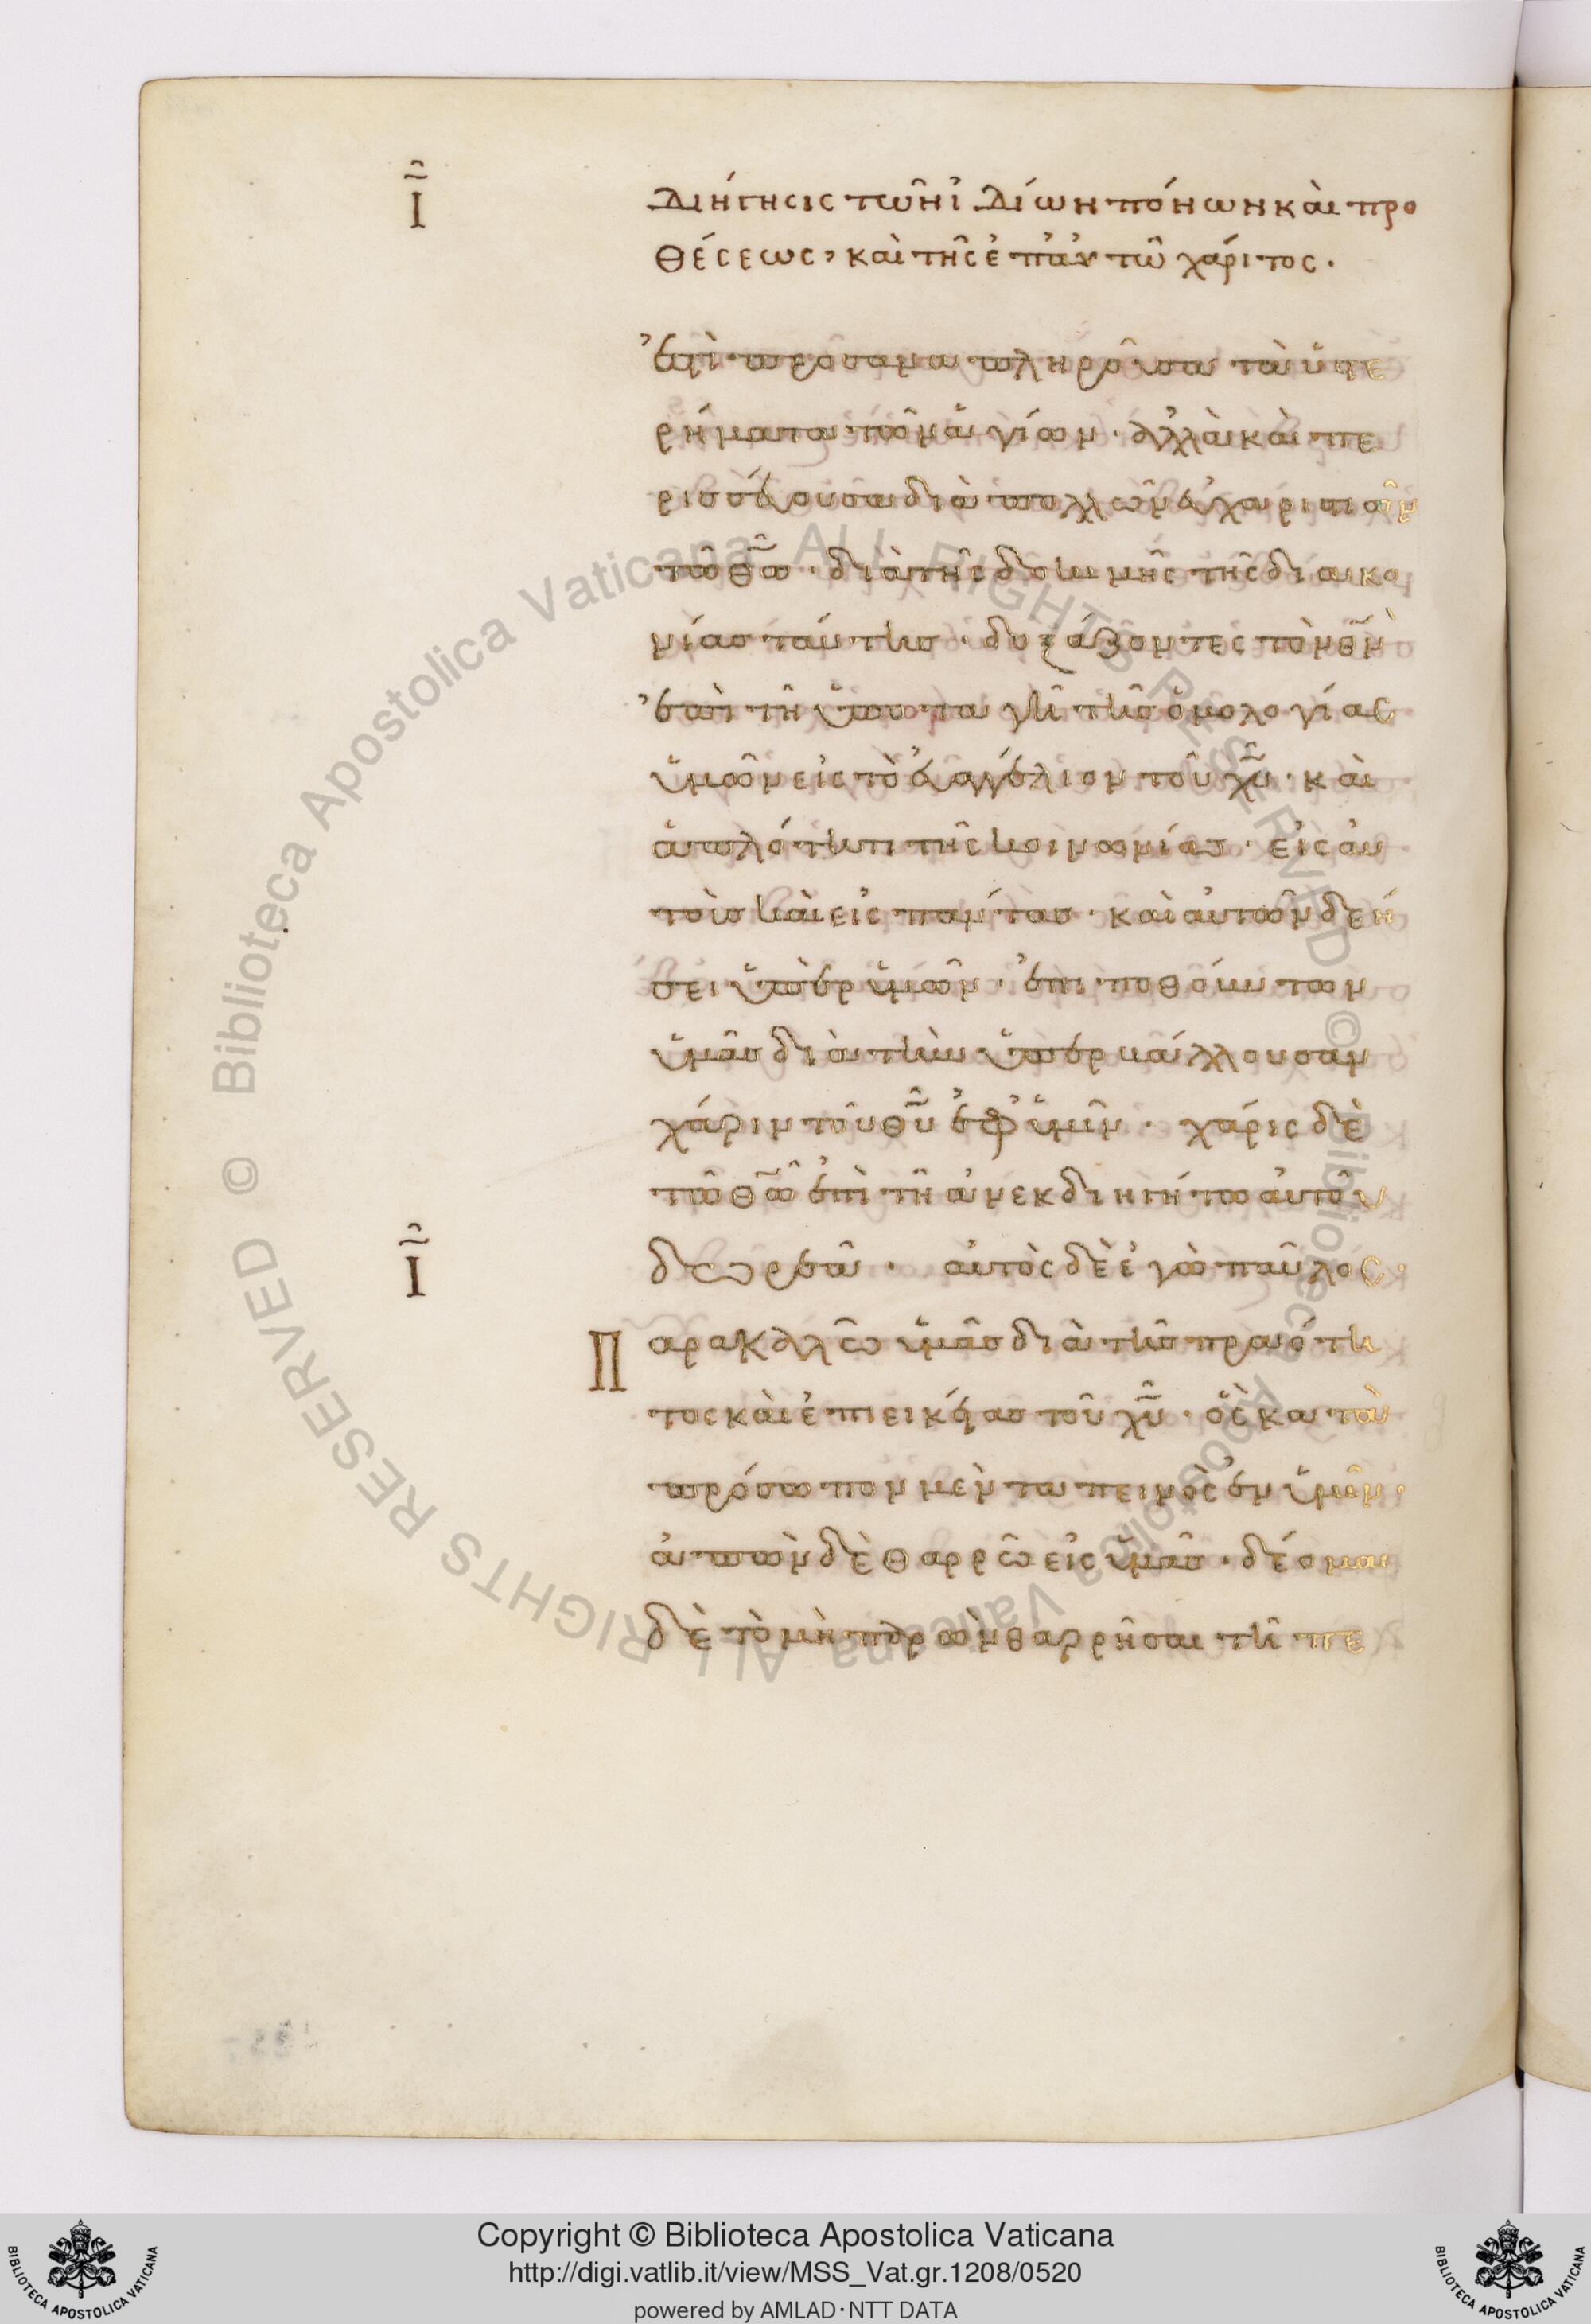 Ι
Διήγησις τῶν ἰδίων πόνων καὶ προ
θέσεως, καὶ τῆς ἐπ' αὐτῶ χάριτος.
ἐστὶ προσαναπληροῦσα τὰ ὑστε
ρήματα τῶν ἁγίων · ἀλλὰ καὶ πε
ρισσεύουσα διὰ πολλῶν εὐχαριστιῶν
τῶ θ͞ω · διὰ τῆς δοκιμῆς τῆς διακο
νίας ταύτης · δοξάζοντες τὸν θ͞ν
ἐπὶ τῆ ὑποταγῆ τῆς ὁμολογίας
ὑμῶν εἰς τὸ εὐαγγέλιον τοῦ χ͞υ · καὶ
ἁπλότητι τῆς κοινωνίας · εἰς αὐ
τοὺς καὶ εἰς πάντας · καὶ αὐτῶν δεή
σει ὑπὲρ ὑμῶν · ἐπιποθούντων
ὑμᾶς διὰ τὴν ὑπερβάλλουσαν
χάριν τοῦ θ͞υ ἐφ' ὑμῖν · χάρις δὲ
τῶ θ͞ω ἐπὶ τῆ ἀνεκδιηγήτω αὐτοῦ
Ι
δωρεᾶ · αὐτὸς δὲ ἐγὼ παῦλος ·
Παρακαλῶ ὑμᾶς διὰ τῆς πραότη
τος καὶ ἐπιεικείας τοῦ χ͞υ · ὃς κατὰ
πρόσωπον μὲν ταπεινὸς ἐν ὑμῖν ·
ἀπὼν δὲ θαρρῶ εἰς ὑμᾶς · δέομαι
δὲ τὸ μὴ παρὼν θαρρῆσαι τῆ πε
Copyright © Biblioteca Apostolica Vaticana
http://digi.vatlib.it/view/MSS_Vat.gr.1208/0520
powered by AMLAD·NTT DATA
BIBLIOTECA APOSTOLICA VATICANA
BIBLIOTECA APOSTOLICA VATICANA
© Biblioteca Apostolica Vaticana ALL RIGHTS RESERVED © Biblioteca Apostolica Vaticana ALL RIGHTS RESERVED